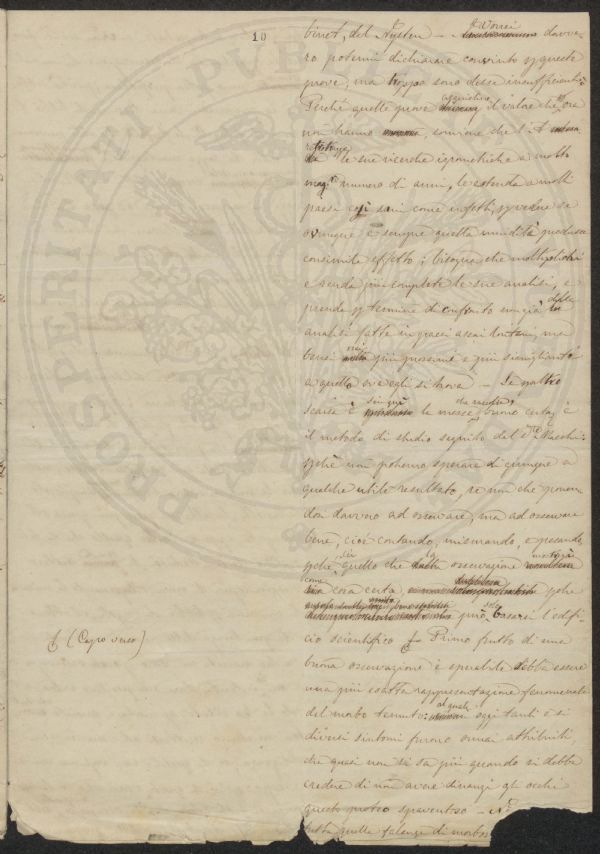 10
PROSPERITATI PVBLI
binet, del Nysten — Vorrei davve-
ro potermi dichiarare convinto p queste
prove, ma troppo sono desse insufficienti.
Perchè quelle prove acquistino il valore che ora
non hanno, converrà che l'A
le sue ricerche igrometriche a molto
magr numero di anni, le estenda a molti
paesi così sani come infetti, p vedere se
ovunque è sempre quella umidità produca
consimile effetto; bisogna che moltiplichi
e renda più complete le sue analisi, e
prenda p termine di confronto non già delle
analisi fatte in paesi assai lontani, ma
bensì più prossimi e più simiglianti
a quello ove egli si trova — Se poi
scarsa è sin quì la messe da raccolta, buono certo è
il metodo di studio seguito del Dre
perchè non potremo sperare di giungere a
qualche utile resultato, se non che ponen-
doci davvero ad osservare, ma ad osservare
bene, cioè contando, misurando, e pesando
pchè quello che la osservazione
come cosa certa, pchè
può basarsi l'edifi-
cio scientifico — Primo frutto di una
buona osservazione è sperabile debba essere
una più esatta rappresentazione fenomenale
del morbo temuto: al quale oggi tanti e sì
diversi sintomi furono omai attribuiti
che quasi non si sa più quando si debba
credere di non avere dinanzi gli occhi
questo proteo spaventoso —
tutta quella falange di morbi
(Capo verso)